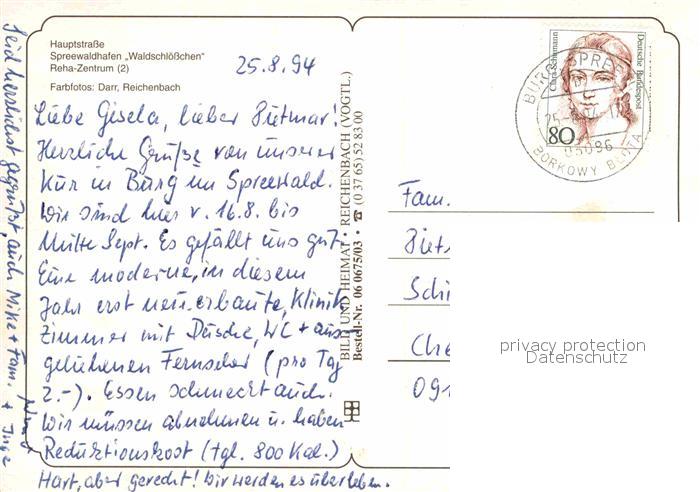 Hauptstraße
Spreewaldhafen „Waldschlößchen"
Reha-Zentrum (2)
Farbfotos: Darr, Reichenbach
25.8.94
Liebe Gisela, lieber Dietmar!
Herzliche Grüße von unserer
Kur in Burg im Spreewald.
Wir sind hier v. 16.8. bis
Mitte Sept. Es gefällt uns gut.
Eine moderne, in diesem
Jahr erst neu erbaute, Klinik
Zimmer mit Dusche, WC + aus-
geliehenen Fernseher (pro Tag
2.-). Essen schmeckt auch.
Wir müssen abnehmen u. haben
Reduktionskost (tgl. 800 Kal.)
Hart, aber gerecht! Wir werden es überleben.
Seid herzlichst gegrüßt, auch Mike + Fam.
+ Inge
BILD UND HEIMAT • REICHENBACH (VOGTL.)
Bestell-Nr. 06 0675/03 • ☎ (0 37 65) 5 28 3 00
Clara Schumann
Deutsche Bundespost
80
BURG SPREEW
03096
BORKOWY BŁOTA
Fam.
Diet
Schi
Che
091
privacy protection
Datenschutz